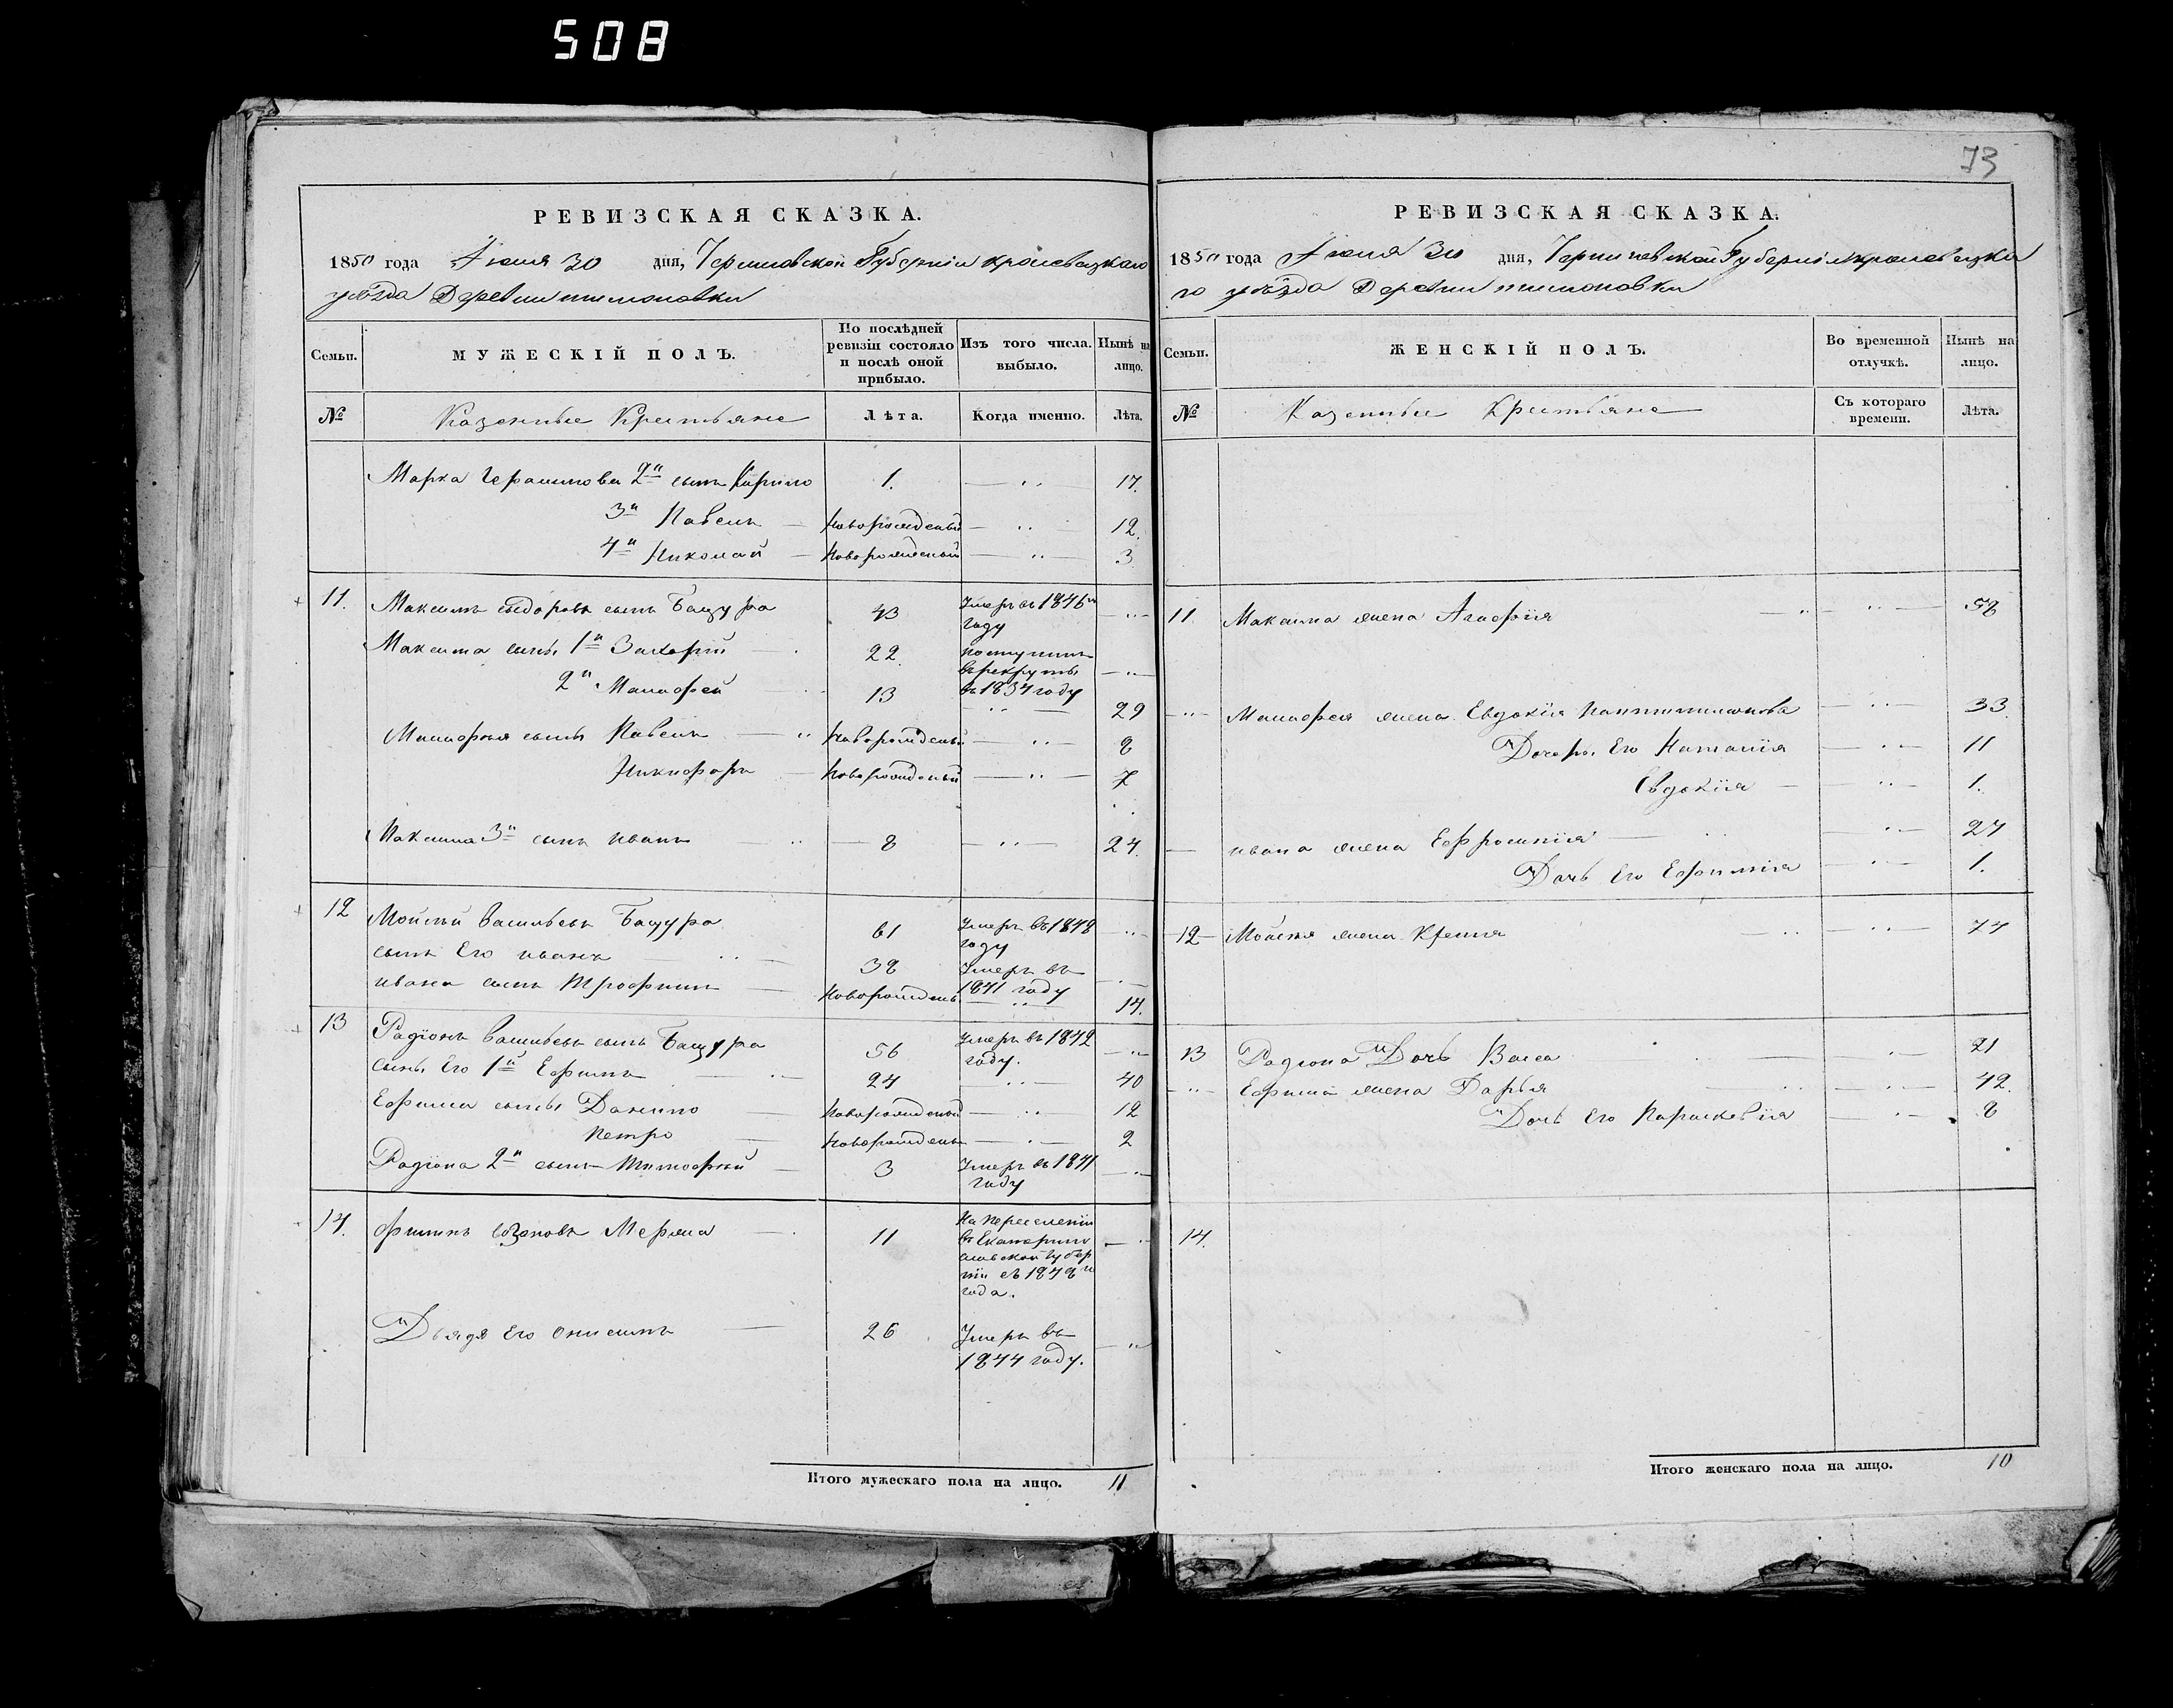 508
РЕВИЗСКАЯ СКАЗКА.
1850 года Июня 30 дня, Черниговской Губерніи кролевецкаго
уѣзда Деревни
Семьи.
МУЖЕСКІЙ ПОЛЪ.
По послѣдней ревизіи состояло и послѣ оной прибыло.
Изъ того числа выбыло.
Нынѣ на лицо.
№
Казенные Крестьяне
Лѣта.
Когда именно.
Лѣта.
Марка Герасимова 2й сынъ Кирило 1. 17.
3й Павелъ Новорожденый 12.
4й Николай Новорожденый 3
11. Максимъ сидоровъ сынъ Бацура 43 Умеръ въ 1846м году
Максима сынъ 1й Захарій 22. поступилъ в рекруты въ 1834 году
2й Маѳей 13 29
сынъ Павелъ Новорожденый 8
Никифоръ Новорожденый 7
Максима 3й сынъ иванъ 8 24.
12 Мойсей Васильевъ Бацура 61 Умеръ въ 1848 году
сынъ Его иванъ 38 Умеръ въ 1841 году
ивана сынъ Трофимъ Новорожден 14.
13 Радіонъ Васильевъ сынъ Бацура 56 Умеръ въ 1842 году.
сынъ Его 1й Ефимъ 24 40
Ефима сыны Данило Новорожденый 12
петро Новорожден 2
Радіона 2й сынъ Тимофей 3 Умеръ въ 1841 году
14. филипъ 11 На переселеніи въ Екатериносlавской губерніи съ 1848го года.
Дядя Его онисимъ 26 Умеръ въ 1844 году.
Итого мужескаго пола на лицо. 11
73
РЕВИЗСКАЯ СКАЗКА.
1850 года Июня 30 дня, Черниговской Губерніи кролевецка
го уѣзда Деревни
Семьи.
ЖЕНСКІЙ ПОЛЪ.
Во временной отлучкѣ.
Нынѣ на лицо.
№
Казенные Крестьяне
Съ котораго времени.
Лѣта.
11. Максима жена Агафія 58
жена Евдокія 33.
Дочери Его Наталія 11
Евдокія 1.
ивана жена Ефросинія 27
Дочь Его Ефимія 1.
12 Мойсея жена 74
13 Радіона Дочь Васса 21
Ефима жена Дарья 42.
Дочь Его Параскевія 8
14.
Итого женскаго пола на лицо. 10